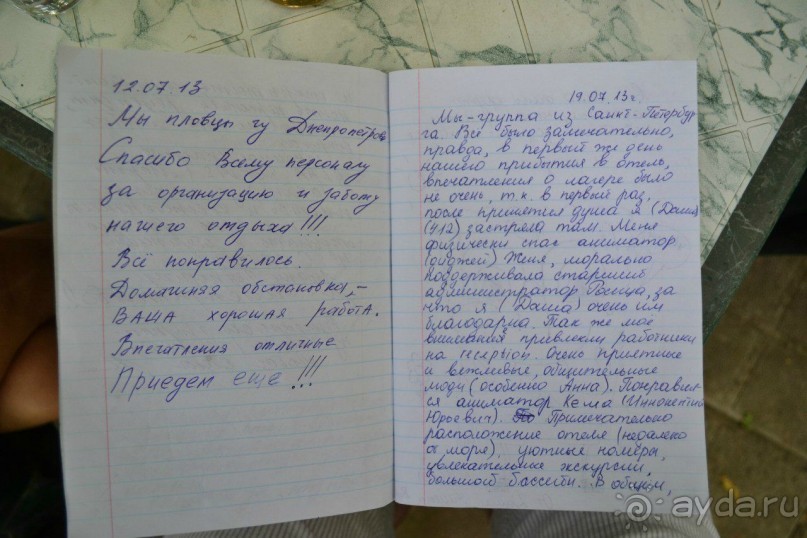 12.07.13
Мы пловцы гу Днепропетров
Спасибо всему персоналу
за организацию и заботу
нашего отдыха!!!
Всё понравилось.
Домашняя обстановка, –
ВАША хорошая работа.
Впечатления отличные
Приедем еще!!!
19.07.13г.
Мы-группа из Санкт-Петербур
га. Всё было замечательно,
правда, в первый же день
нашего прибытия в отель,
впечатления о лагере было
не очень, т.к. в первый раз,
после принятия душа я (Даша)
(412) застряла там. Меня
физически спас аниматор
(диджей) Женя, морально
поддерживала старший
администратор Росица, за
что я (Даша) очень им
благодарна. Так же мое
внимания привлекли работники
на recepsion. Очень приятные
и вежливые, общительные
люди (особенно Анна). Понравил-
ся аниматор Кеша (Иннокентий
Юрьевич). Примечательно
расположение отеля (недалеко
от моря), уютные номеры,
увлекательные экскурсии,
большой бассейн. В общем,
ayda.ru